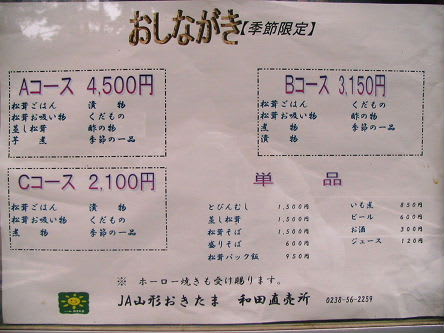 おしながき【季節限定】
Aコース 4,500円
松茸ごはん 漬物
松茸お吸い物 くだもの
蒸し松茸 酢の物
芋煮 季節の一品
Bコース 3,150円
松茸ごはん くだもの
松茸お吸い物 酢の物
煮物 季節の一品
漬物
Cコース 2,100円
松茸ごはん 漬物
松茸お吸い物 くだもの
煮物 季節の一品
単品
とびんむし 1,500円
蒸し松茸 1,500円
松茸そば 1,500円
盛りそば 600円
松茸パック飯 950円
いも煮 850円
ビール 600円
お酒 300円
ジュース 120円
※ ホーロー焼きも受け賜ります。
JA山形おきたま 和田直売所 0238-56-2259